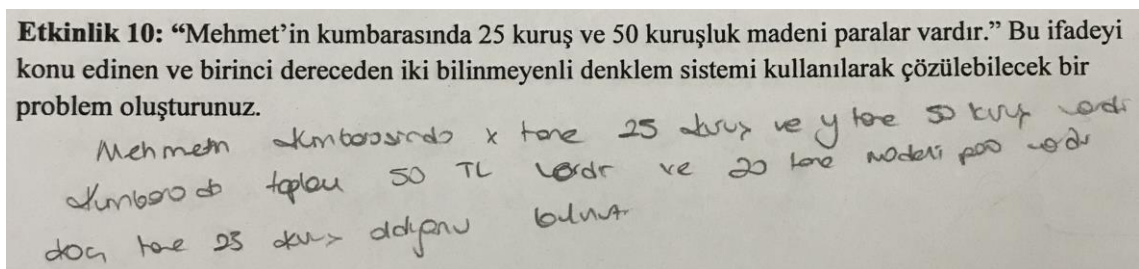 Etkinlik 10: “Mehmet’in kumbarasında 25 kuruş ve 50 kuruşluk madeni paralar vardır.” Bu ifadeyi
konu edinen ve birinci dereceden iki bilinmeyenli denklem sistemi kullanılarak çözülebilecek bir
problem oluşturunuz.
Mehmetn kumbarasında x tane 25 kuruş ve y tane 50 kuruş vardır
kumbarada toplam 50 TL vardır ve 20 tane madeni para vardır
kaç tane 25 kuruş olduğunu bulunuz.